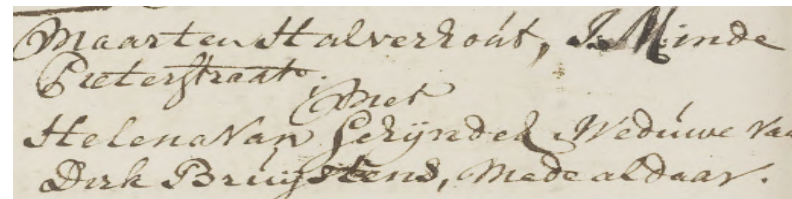 Maarten Halverhout, J:M: in de
Pieterstraat.
Met
Helena Van Schijndel Weduwe Va
Dirk Bruijstens, Mede aldaar.